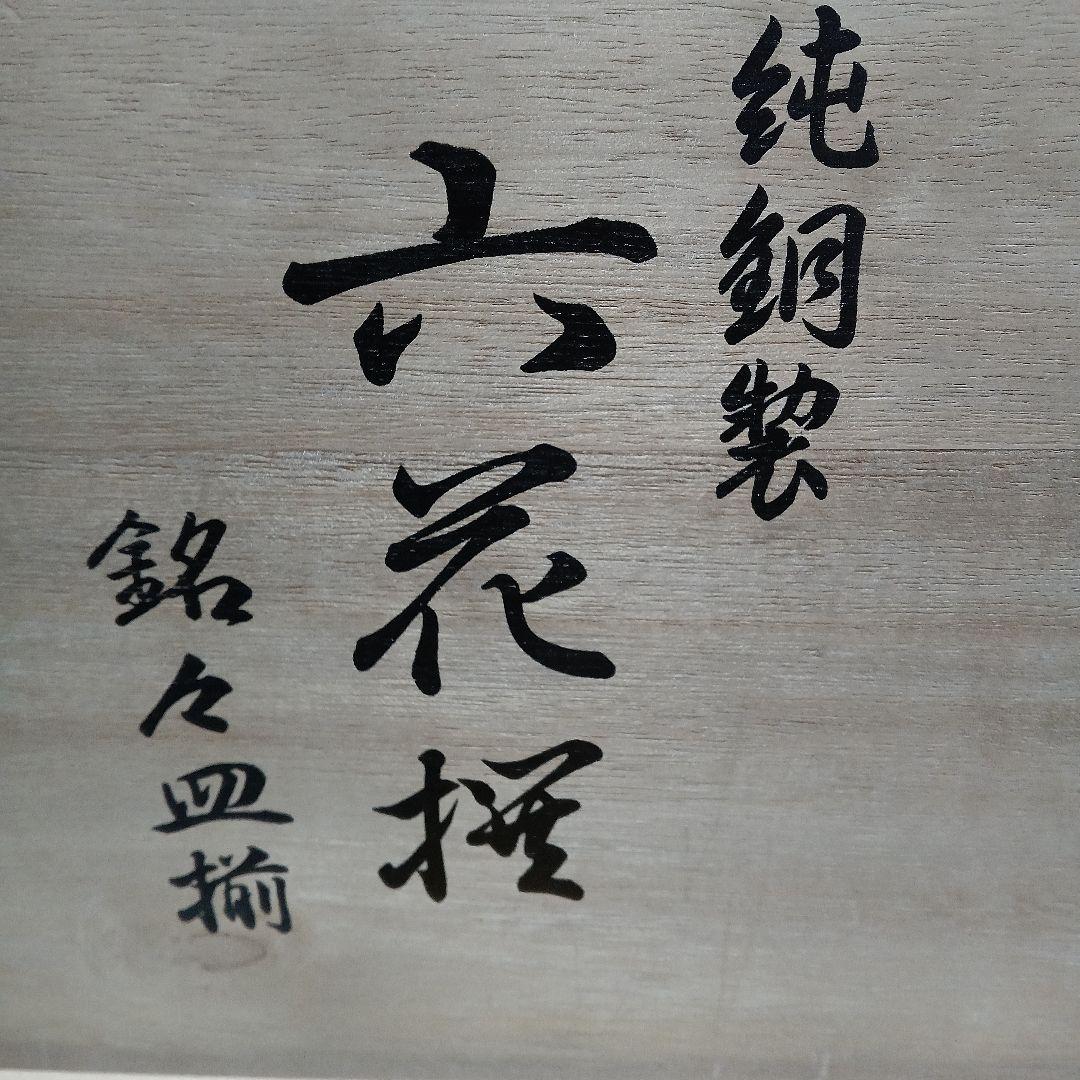 純銅製
六花撰
銘々皿揃